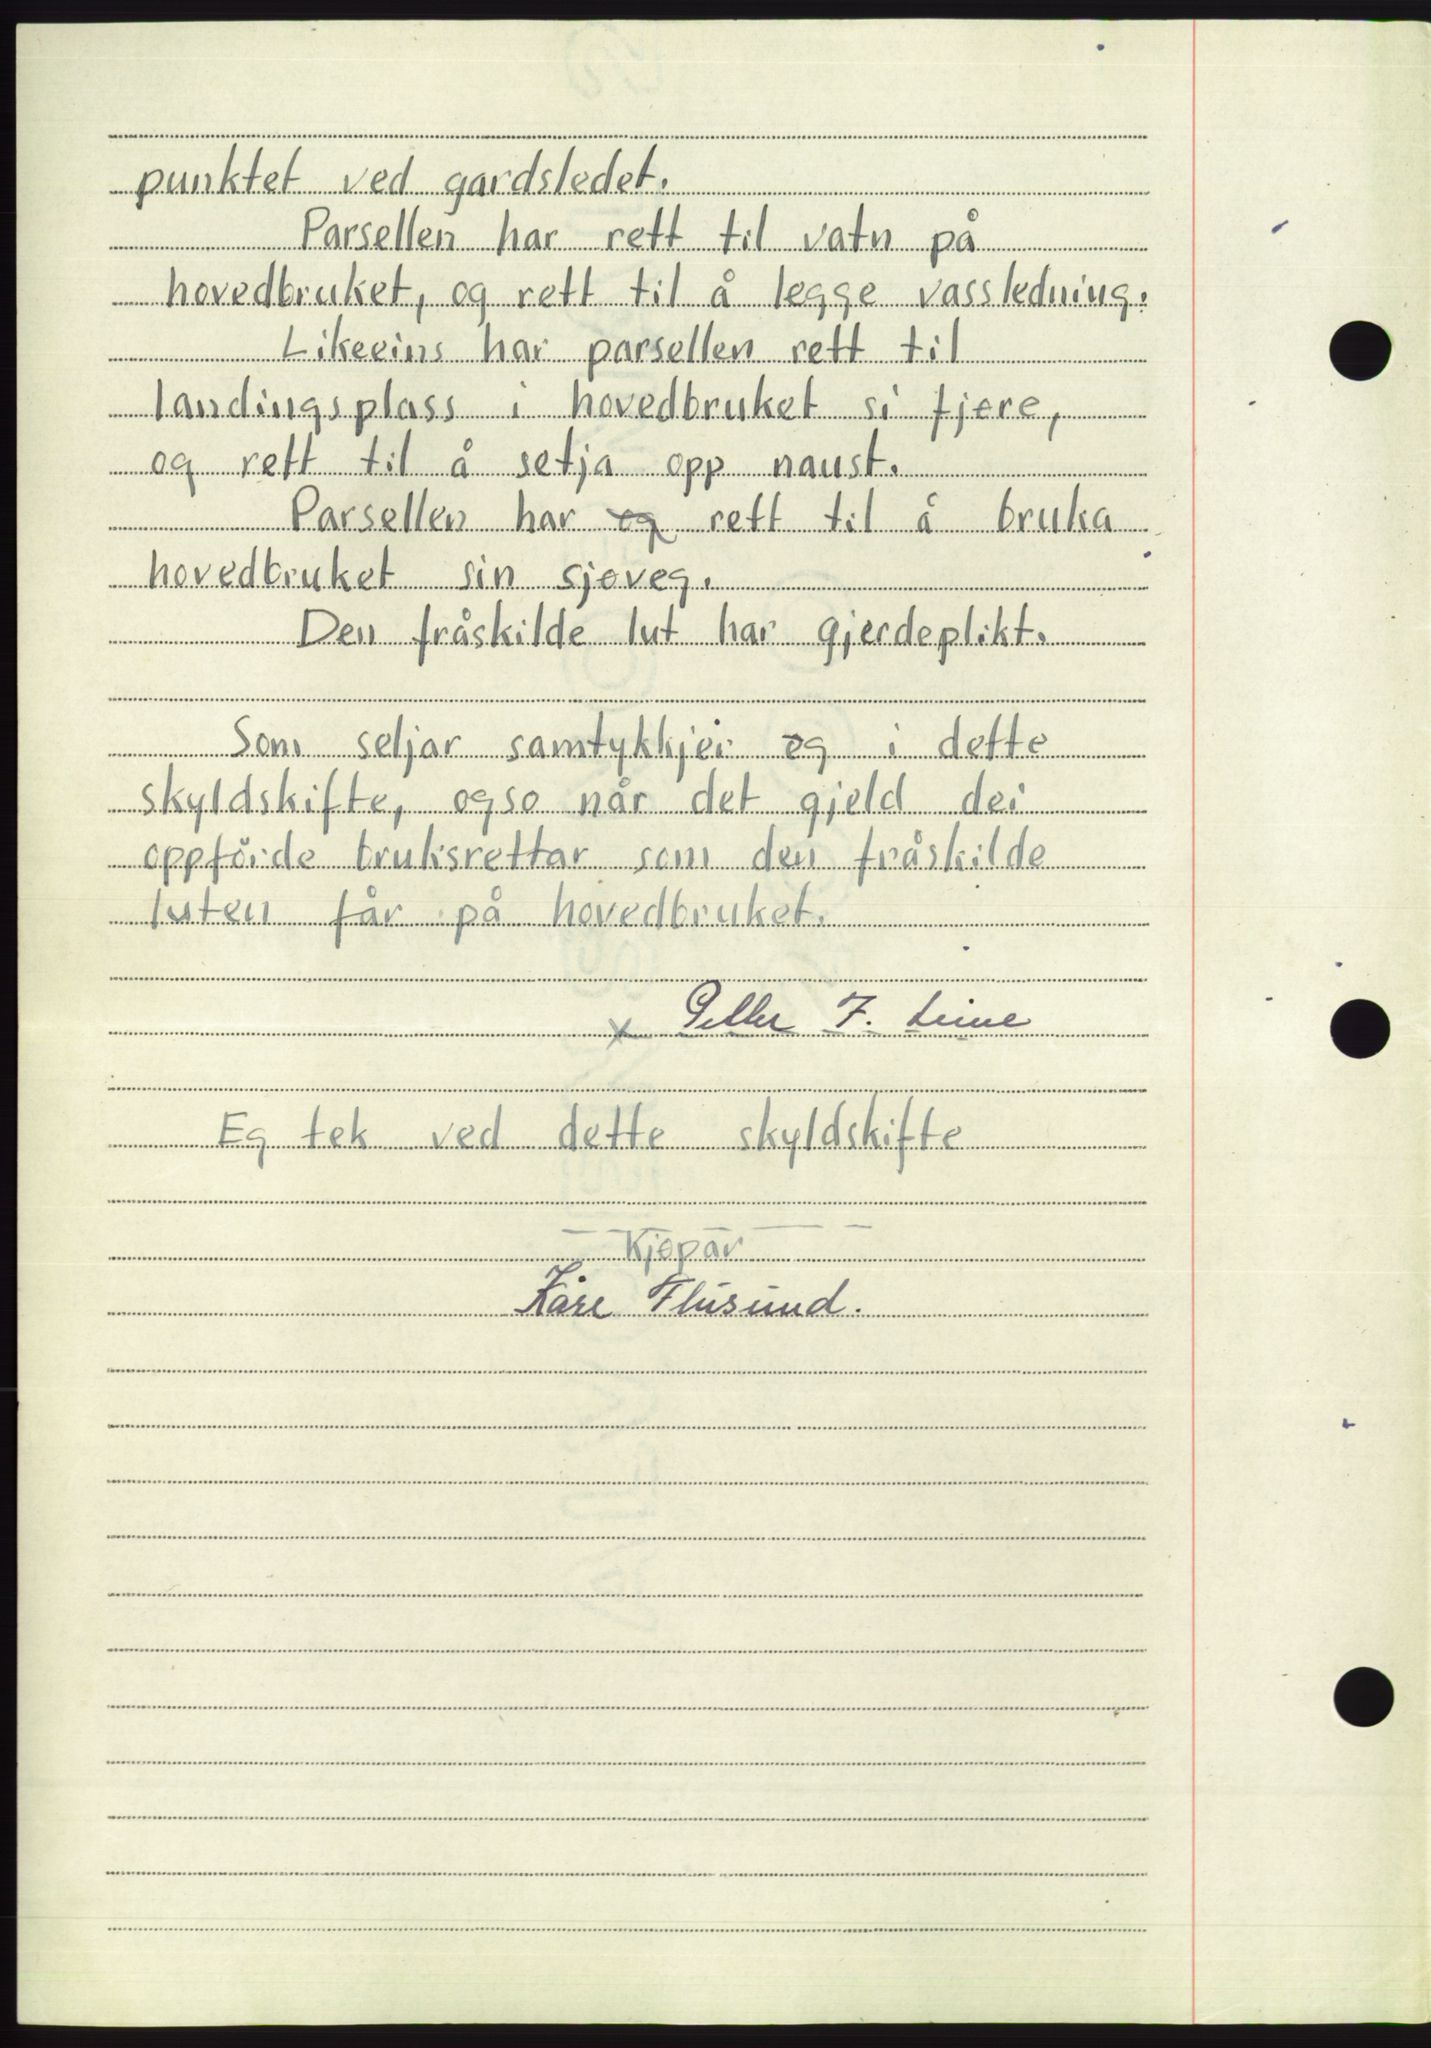 punktet ved gardsledet.
Parsellen har rett til vatn på
hovedbruket, og rett til å legge vassledning.
Likeeins har parsellen rett til
landingsplass i hovedbruket si fjøre,
og rett til å setja opp naust.
Parsellen har og rett til å bruka
hovedbruket sin sjøveg.
Den fråskilde lut har gjerdeplikt.
Som seljar samtykkjer eg i dette
skyldskifte, ogso når det gjeld dei
oppførde bruksrettar som den fråskilde
luten får på hovedbruket.
x Petter F. Leine
Eg tek ved dette skyldskifte
Kjøpar
Kåre Flusund.